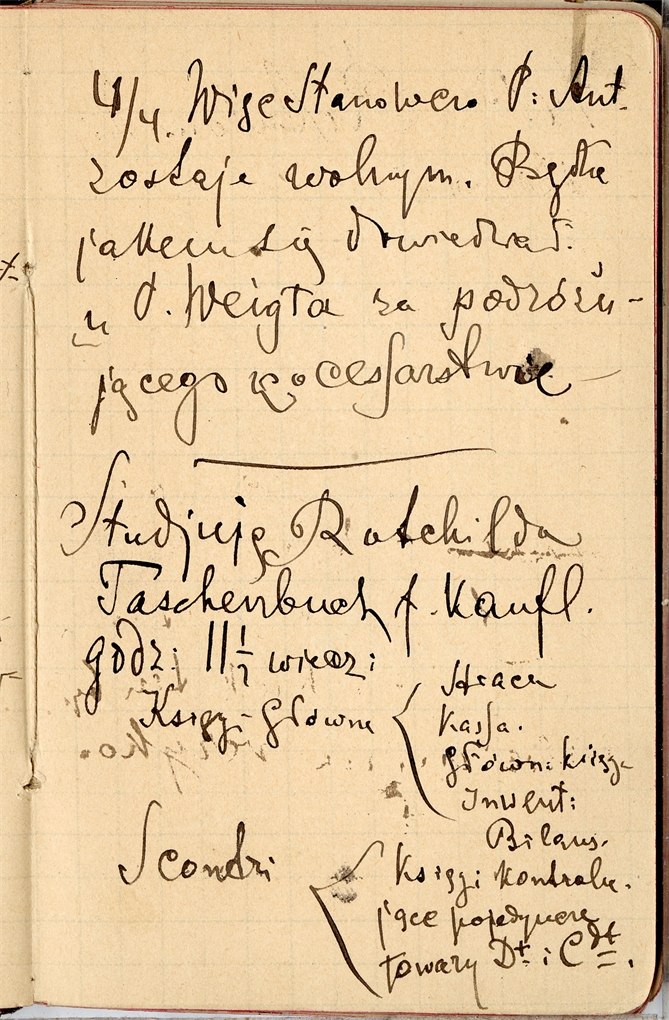 4/4. Więc Stanowczo P: Ant.
zostaje wolnym. Będę
jakem się dowiedział.
u P. Weigta za podróżu-
jącego po cessarstwie —
Studjuję Rotchilda
Taschenbuch f. Kaufl.
godz: 11 1/2 wiecz:
Księgi-główne
Kassa.
główn. księga
Inwent:
Bilans.
Scontri
Księgi kontrolu-
jące pojedyncze
towary Dt. i Cdt.